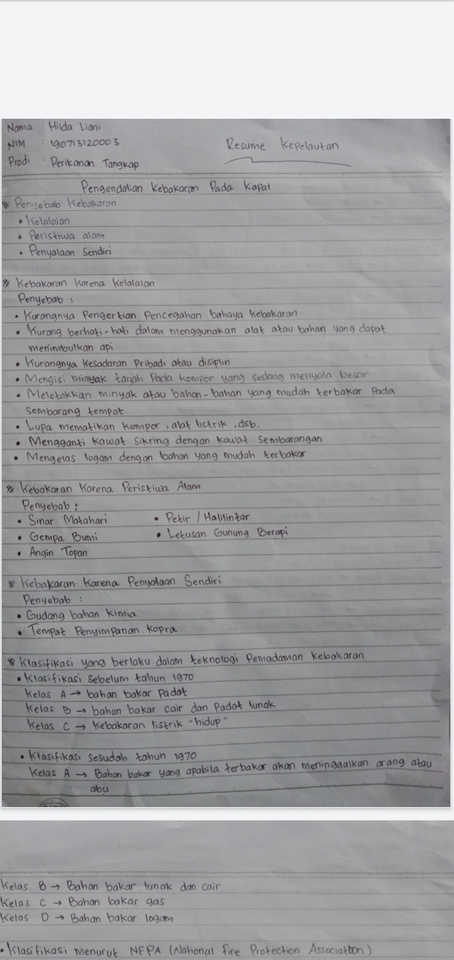 Nama : Hilda Liani
NIM : 1910713120003
Resume Kepelautan
Prodi : Perikanan Tangkap
Pengendalian Kebakaran Pada Kapal
* Penyebab Kebakaran
• Kelalaian
• Peristiwa alam
• Penyalaan Sendiri
* Kebakaran Karena Kelalaian
Penyebab :
• Kurangnya Pengertian Pencegahan bahaya kebakaran
• Kurang berhati-hati dalam menggunakan alat atau bahan yang dapat
menimbulkan api
• Kurangnya Kesadaran Pribadi atau disiplin
• Mengisi minyak tanah Pada kompor yang sedang menyala besar
• Meletakkan minyak atau bahan-bahan yang mudah terbakar Pada
Sembarang tempat
• Lupa mematikan kompor, alat listrik, dsb.
• Mengganti kawat sikring dengan kawat Sembarangan
• Mengelas logam dengan bahan yang mudah terbakar
* Kebakaran Karena Peristiwa Alam
Penyebab :
• Sinar Matahari • Petir / Halilintar
• Gempa Bumi • Letusan Gunung Berapi
• Angin Topan
* Kebakaran Karena Penyalaan Sendiri
Penyebab :
• Gudang bahan kimia
• Tempat Penyimpanan kopra
* Klasifikasi yang berlaku dalam teknologi Pemadaman kebakaran
• Klasifikasi Sebelum tahun 1970
Kelas A → bahan bakar Padat
Kelas B → bahan bakar cair dan Padat lunak
Kelas C → Kebakaran listrik "hidup"
• Klasifikasi Sesudah tahun 1970
Kelas A → Bahan bakar yang apabila terbakar akan meninggalkan arang atau
abu
Kelas B → Bahan bakar lunak dan cair
Kelas C → Bahan bakar gas
Kelas D → Bahan bakar logam
• Klasifikasi menurut NFPA (National Fire Protection Association)